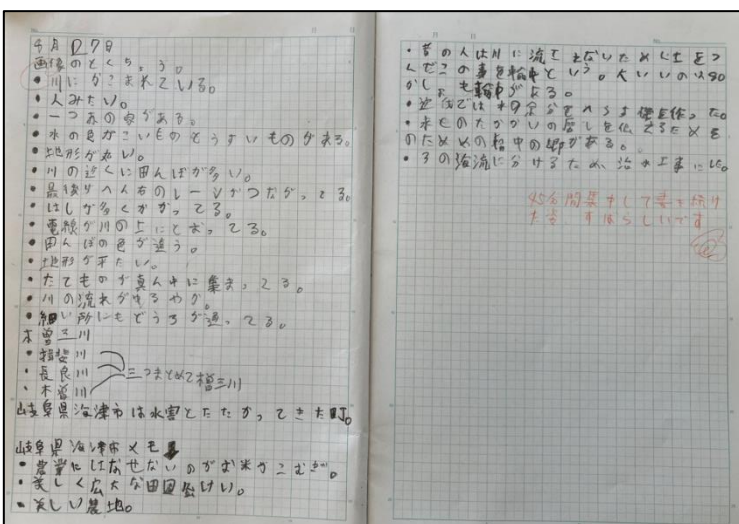 5月17日
画像のとくちょう。
・川にかこまれている。
・人みたい。
・一つ島の島がある。
・水の色がこいものとうすいものがある。
・地形が丸い。
・川の近くに田んぼが多い。
・最後リへん右のレーンがつながってる。
・はしが多くかかってる。
・電線が川の上にとおってる。
・田んぼの色が違う。
・地形が平たい。
・たてものが真ん中に集まってる。
・川の流れがゆるやか。
・細い所にもどうろが通ってる。
木曽三川
・揖斐川
・長良川
・木曽川
三つまとめて木曽三川
岐阜県海津市は水害とたたかってきた町。
岐阜県海津市メモ
・農業にはなせないのがお米かこむぎ。
・美しく広大な田園風けい。
・美しい農地。
・昔の人は川に流て
んだこの事を輪中という。大いの
かしょも輪中がある。
・水とのたたかいの歴しを伝えるため
のための輪中の郷がある。
・3の治流に分けるため、治水工事にした。
45分間集中して書き続け
た姿 すばらしいです